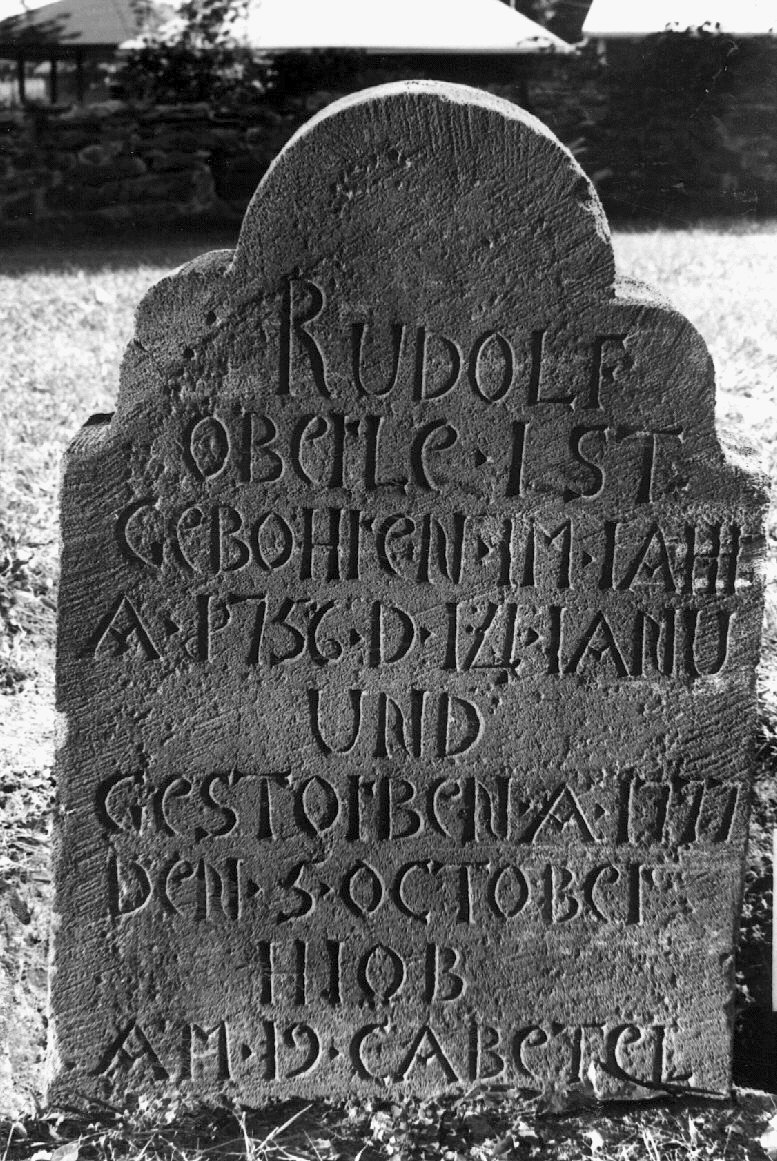 RUDOLF
OBERLE · IST
GEBOHREN · IM · IAHR
A · 1756 · D · 14 · IANU
UND
GESTORBEN · A · 1777
DEN · 5 · OCTOBER
HIOB
AM · 19 · CABETEL